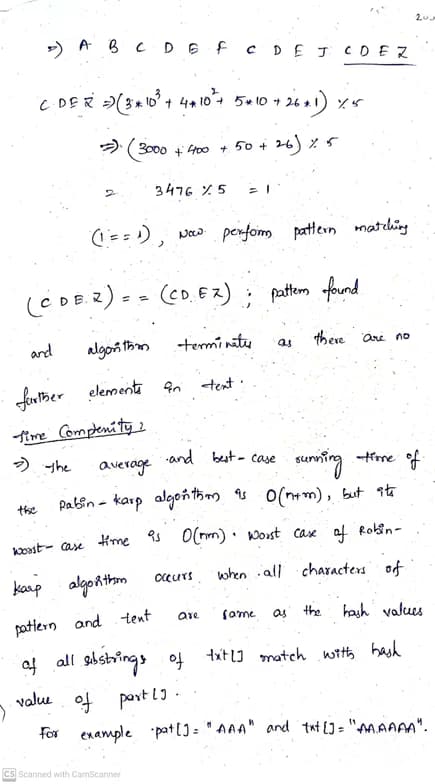 ⇒) A B C D E F C D E J C D E Z
C D E Z ⇒ (3*10³ + 4*10² + 5*10 + 26*1) % 5
⇒ (3000 + 400 + 50 + 26) % 5
= 3476 % 5 = 1
(1 == 1), Now perform pattern matching
(C D E Z) == (C D E Z) ; pattern found
and algorithm terminates as there are no
further elements in text.
Time Complexity :
⇒ The average and best-case running time of
the Rabin-karp algorithm is O(n+m), but its
worst-case time is O(nm). Worst case of Rabin-
karp algorithm occurs when all characters of
pattern and text are same as the hash values
of all substrings of txt[] match with hash
value of part[].
For example pat[] = "AAA" and txt[] = "AAAAAA".
CS Scanned with CamScanner